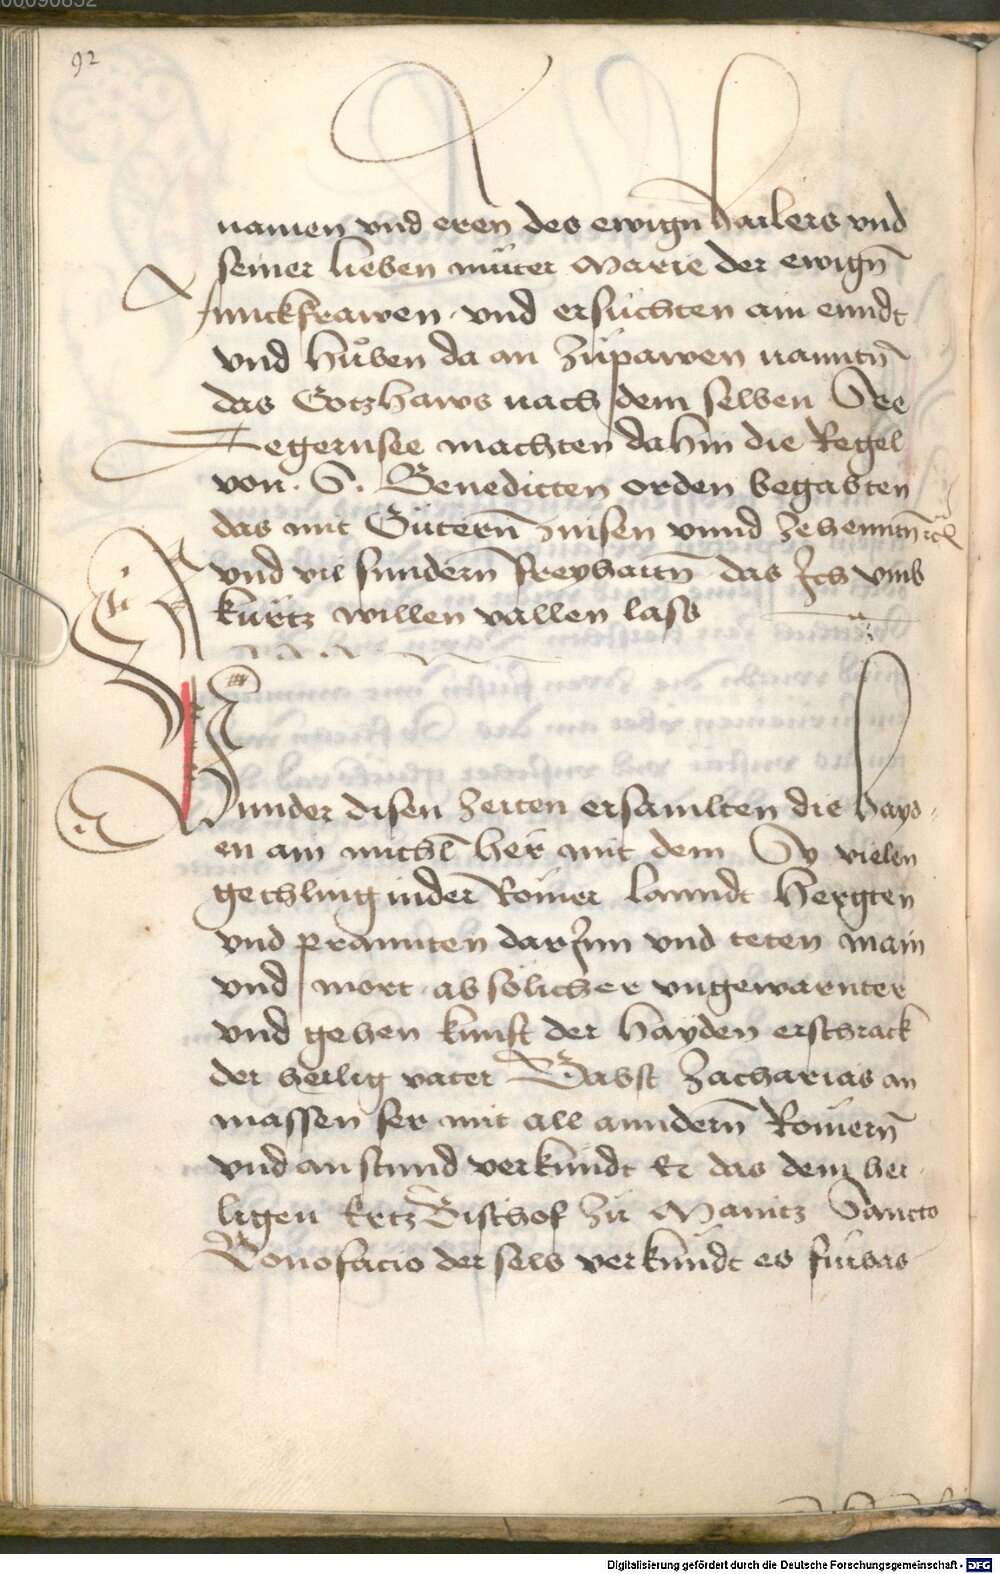 00090852
92
namen vnd eren des ewign̄ hailers vnd
seiner lieben mūter Marie der ewign̄
Junckfrawen · vnd ersuchten ain enndt
vnd hůben da an zūpawen nanntn̄
das Gotzhaws nach dem selben See
Tegernsee machten dahin die Regel
von · S · Benedicten orden begabten
das mit Gūtern̄ zinsen vnnd zehenntn̄ rc
vnd vil sundern̄ freyhaitn̄ das Ich vmb
kürtz willen vallen lass
Vnnder disen zeiten ersamlten die hayd-
en ain michl̄ her mit dem Sy vielen
gechling inder Römer lanndt hergten
vnd prannten darInn vnd teten main
vnd mort ab sölicher vngewarnter
vnd gehen kunft der hayden erschrack
der heilig vater Babst Zacharias an
massen ser mit all anndern̄ Römern̄
vnd anstund verkündt Er das dem hei-
ligen Ertzbischof zū Maintz Sancto
Bonofacio der selb verkündt es fürbas
Digitalisierung gefördert durch die Deutsche Forschungsgemeinschaft - DFG